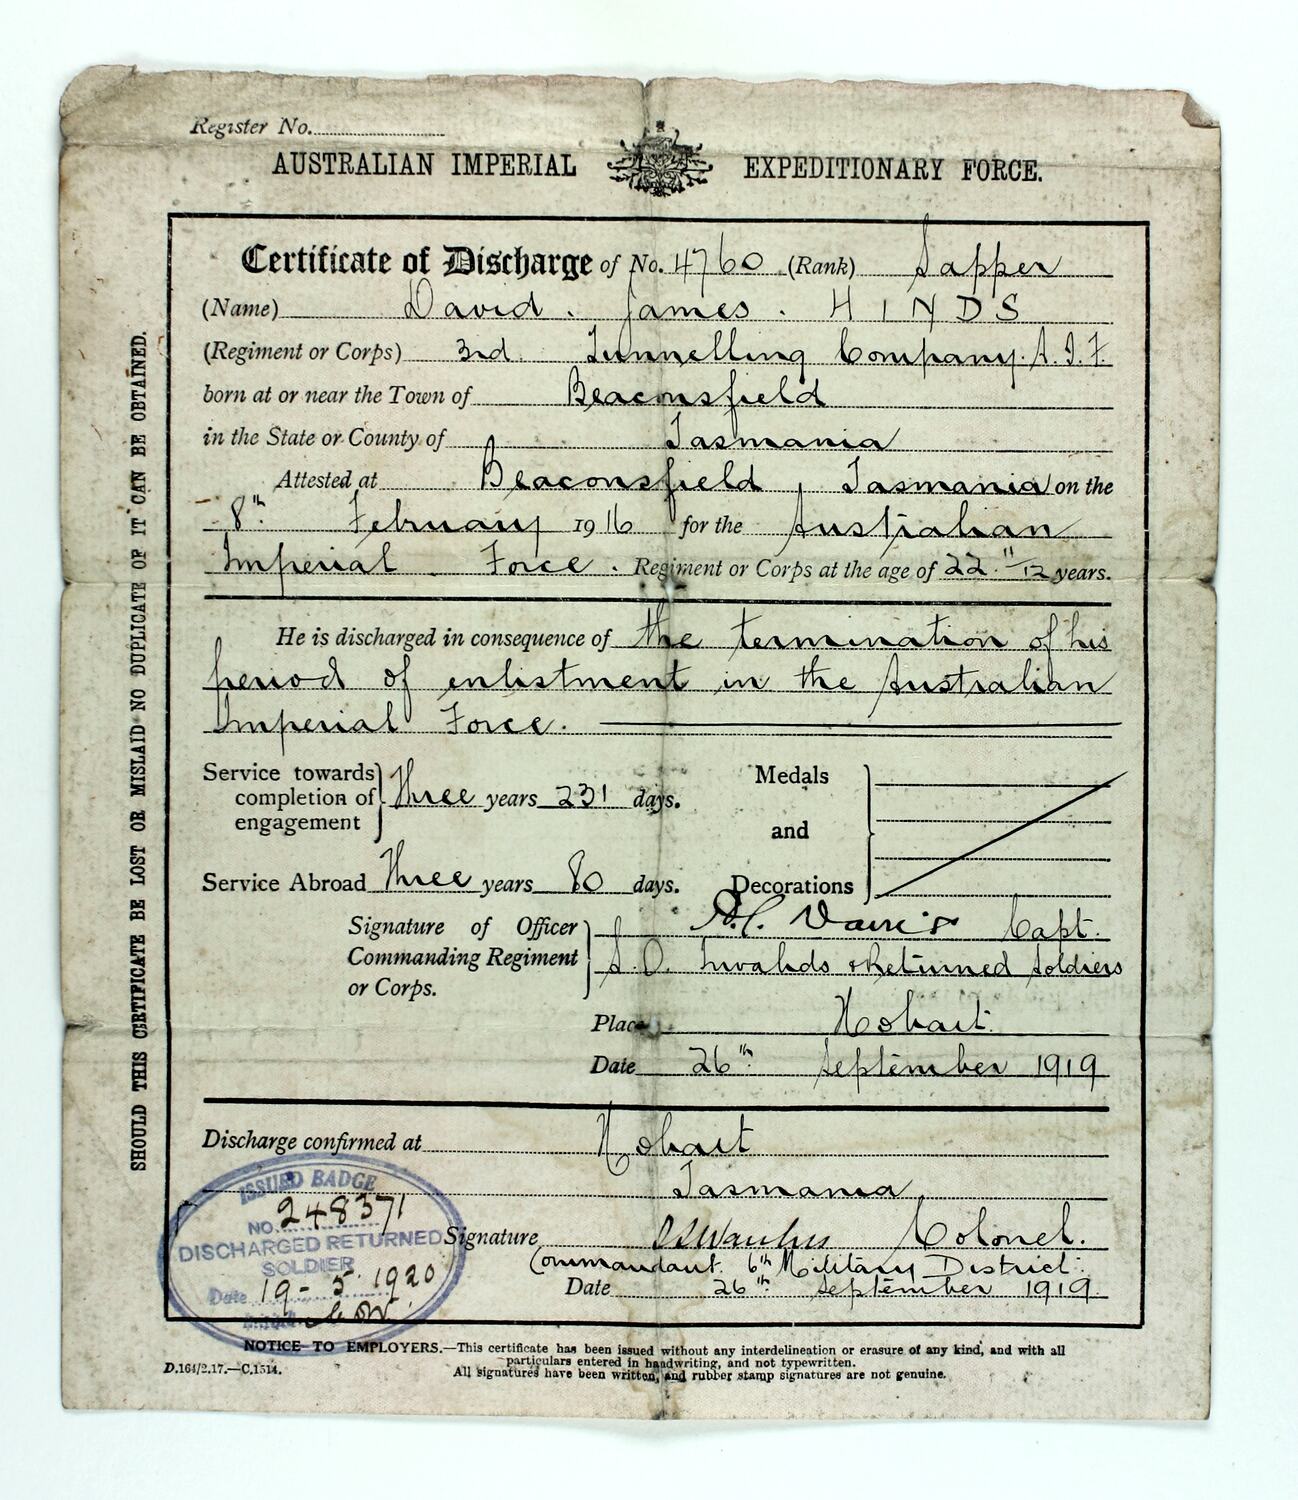 Register No.
AUSTRALIAN IMPERIAL EXPEDITIONARY FORCE.
Certificate of Discharge of No. 4760 (Rank) Sapper
(Name) David . James . HINDS
(Regiment or Corps) 3rd. Tunnelling Company. A.I.F.
born at or near the Town of Beaconsfield
in the State or County of Tasmania
Attested at Beaconsfield, Tasmania on the
8th. February 1916 for the Australian
Imperial Force. Regiment or Corps at the age of 22 11/12 years.
He is discharged in consequence of the termination of his
period of enlistment in the Australian
Imperial Force.
Service towards completion of engagement } Three years 231 days.
Medals and Decorations
Service Abroad Three years 80 days.
Signature of Officer Commanding Regiment or Corps. } Capt.
S.O. Invalids & Returned Soldiers
Place Hobart.
Date 26th. September 1919
Discharge confirmed at Hobart
Tasmania
Signature Colonel.
Commandant. 6th Military District.
Date 26th. September 1919.
ISSUED BADGE
NO. 248371
DISCHARGED RETURNED
SOLDIER
Date 19-5-1920
NOTICE TO EMPLOYERS.—This certificate has been issued without any interdelineation or erasure of any kind, and with all
particulars entered in handwriting, and not typewritten.
All signatures have been written, and rubber stamp signatures are not genuine.
D.164/2.17.—C.1514.
SHOULD THIS CERTIFICATE BE LOST OR MISLAID NO DUPLICATE OF IT CAN BE OBTAINED.